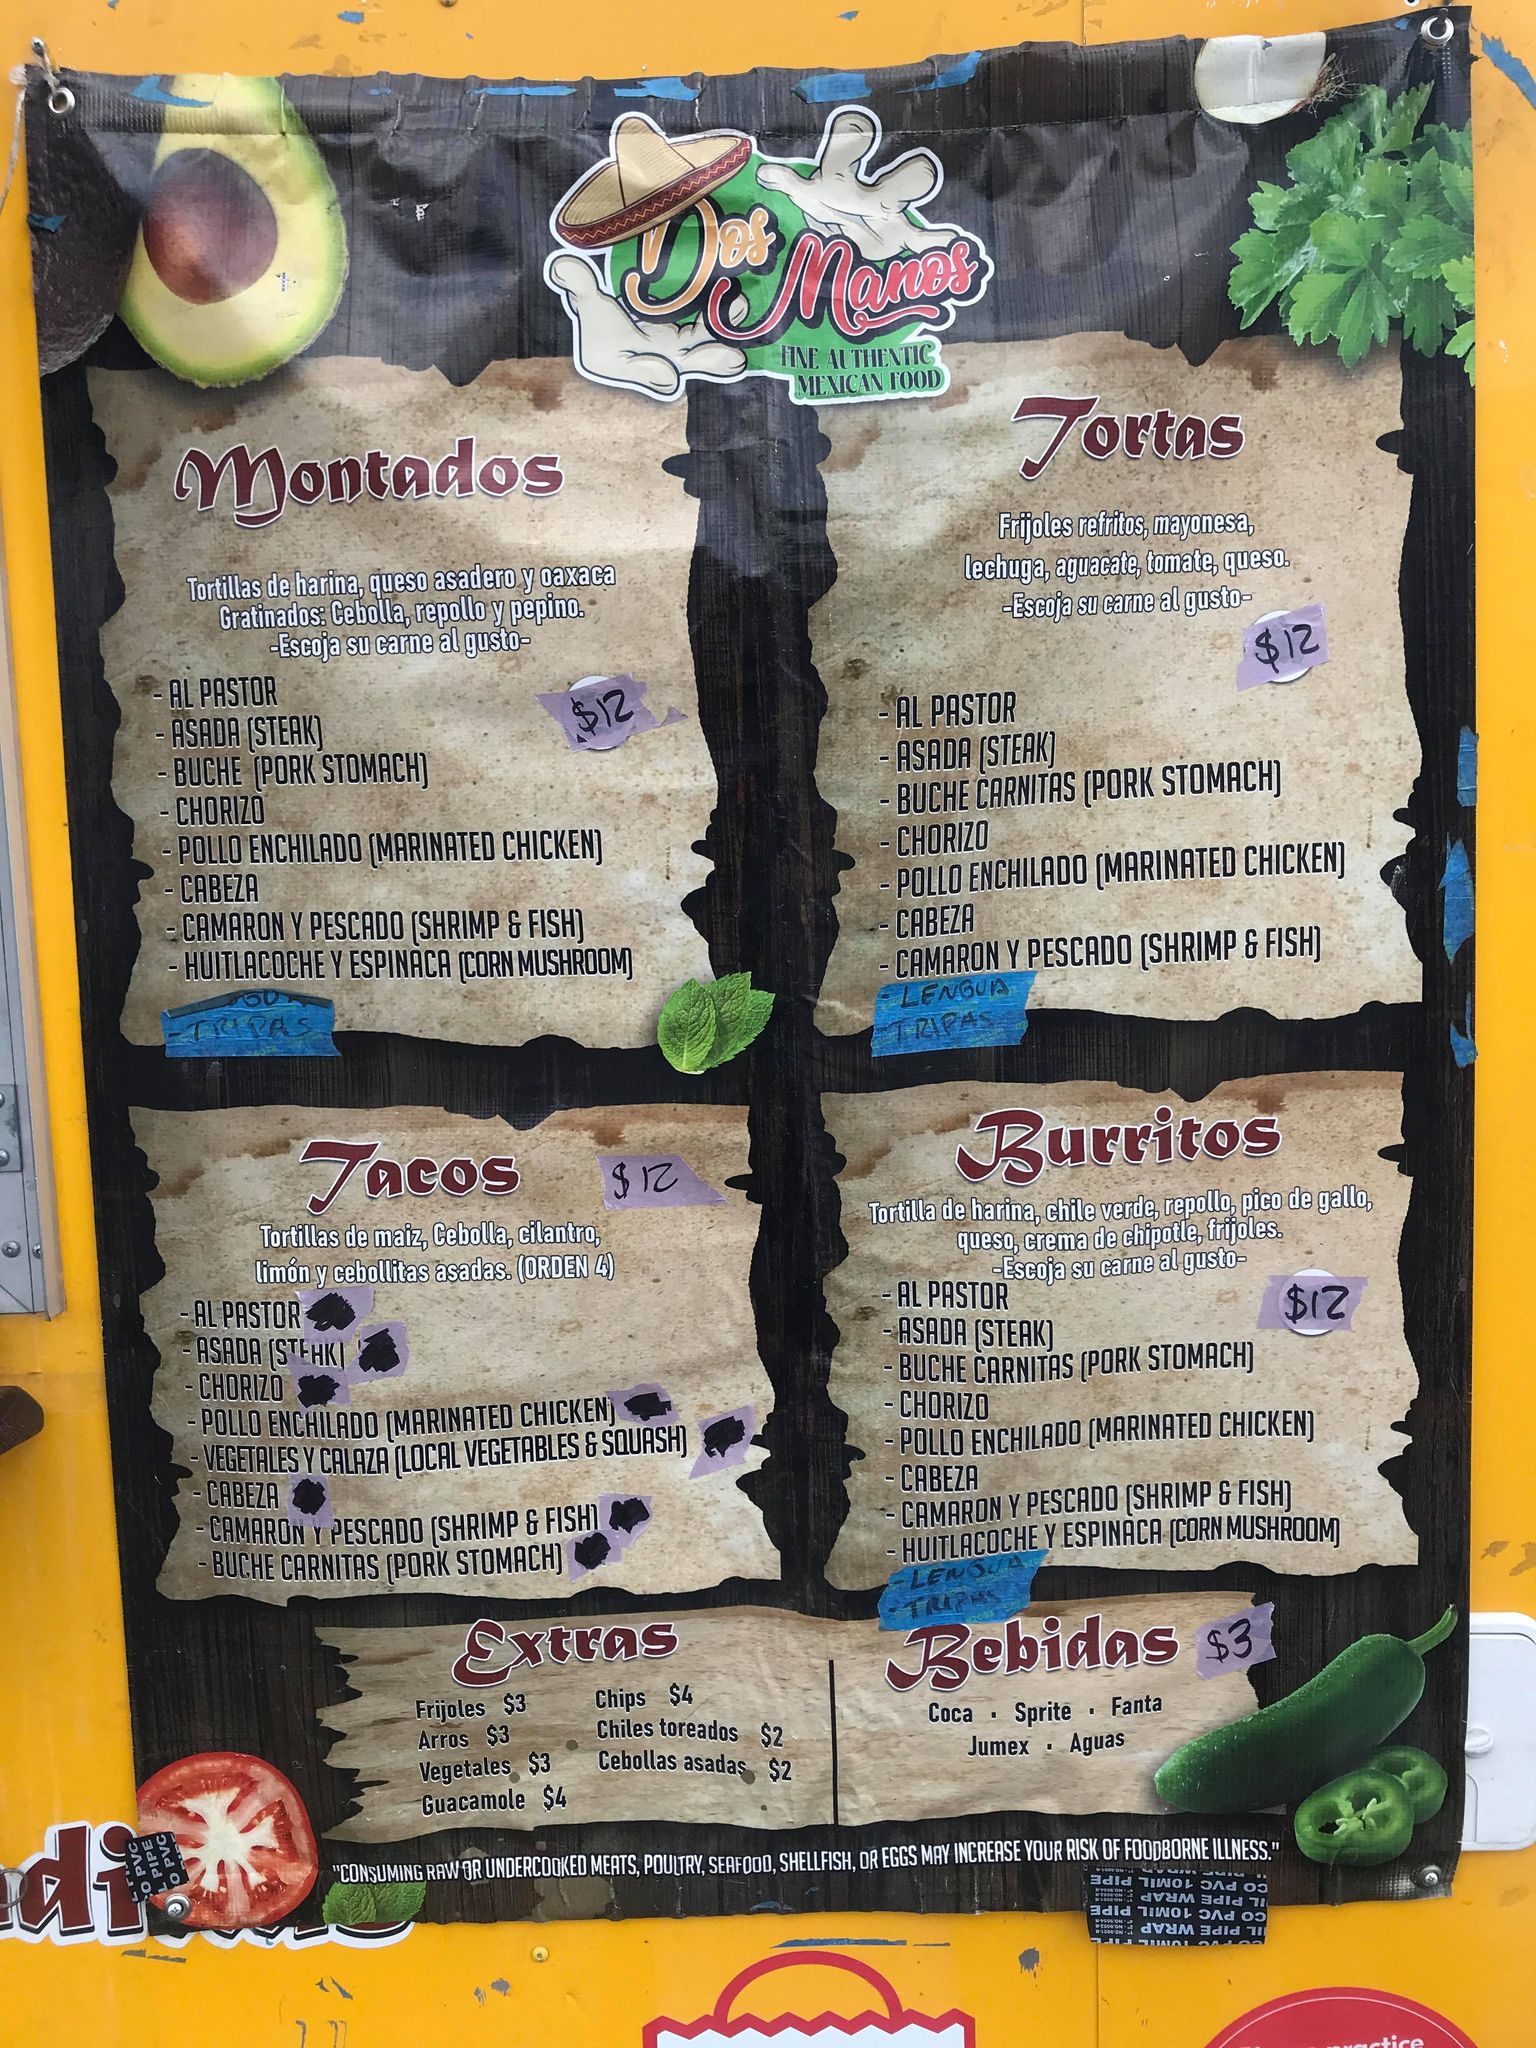 Dos Manos
FINE AUTHENTIC
MEXICAN FOOD
Montados
Tortillas de harina, queso asadero y oaxaca
Gratinados: Cebolla, repollo y pepino.
-Escoja su carne al gusto-
$12
- AL PASTOR
- ASADA (STEAK)
- BUCHE (PORK STOMACH)
- CHORIZO
- POLLO ENCHILADO (MARINATED CHICKEN)
- CABEZA
- CAMARON Y PESCADO (SHRIMP & FISH)
- HUITLACOCHE Y ESPINACA (CORN MUSHROOM)
- TRIPAS
Tortas
Frijoles refritos, mayonesa,
lechuga, aguacate, tomate, queso.
-Escoja su carne al gusto-
$12
- AL PASTOR
- ASADA (STEAK)
- BUCHE CARNITAS (PORK STOMACH)
- CHORIZO
- POLLO ENCHILADO (MARINATED CHICKEN)
- CABEZA
- CAMARON Y PESCADO (SHRIMP & FISH)
- LENGUA
- TRIPAS
Tacos $12
Tortillas de maiz, Cebolla, cilantro,
limón y cebollitas asadas. (ORDEN 4)
- AL PASTOR
- ASADA (STEAK)
- CHORIZO
- POLLO ENCHILADO (MARINATED CHICKEN)
- VEGETALES Y CALAZA (LOCAL VEGETABLES & SQUASH)
- CABEZA
- CAMARON Y PESCADO (SHRIMP & FISH)
- BUCHE CARNITAS (PORK STOMACH)
Burritos
Tortilla de harina, chile verde, repollo, pico de gallo,
queso, crema de chipotle, frijoles.
-Escoja su carne al gusto-
$12
- AL PASTOR
- ASADA (STEAK)
- BUCHE CARNITAS (PORK STOMACH)
- CHORIZO
- POLLO ENCHILADO (MARINATED CHICKEN)
- CABEZA
- CAMARON Y PESCADO (SHRIMP & FISH)
- HUITLACOCHE Y ESPINACA (CORN MUSHROOM)
- LENGUA
- TRIPAS
Extras
Frijoles $3
Arros $3
Vegetales $3
Guacamole $4
Chips $4
Chiles toreados $2
Cebollas asadas $2
Bebidas $3
Coca · Sprite · Fanta
Jumex · Aguas
"CONSUMING RAW OR UNDERCOOKED MEATS, POULTRY, SEAFOOD, SHELLFISH, OR EGGS MAY INCREASE YOUR RISK OF FOODBORNE ILLNESS."
CO PVC 10MIL PIPE
IL PIPE WRAP
CO PVC 10MIL PIPE
IL PIPE WRAP
practice